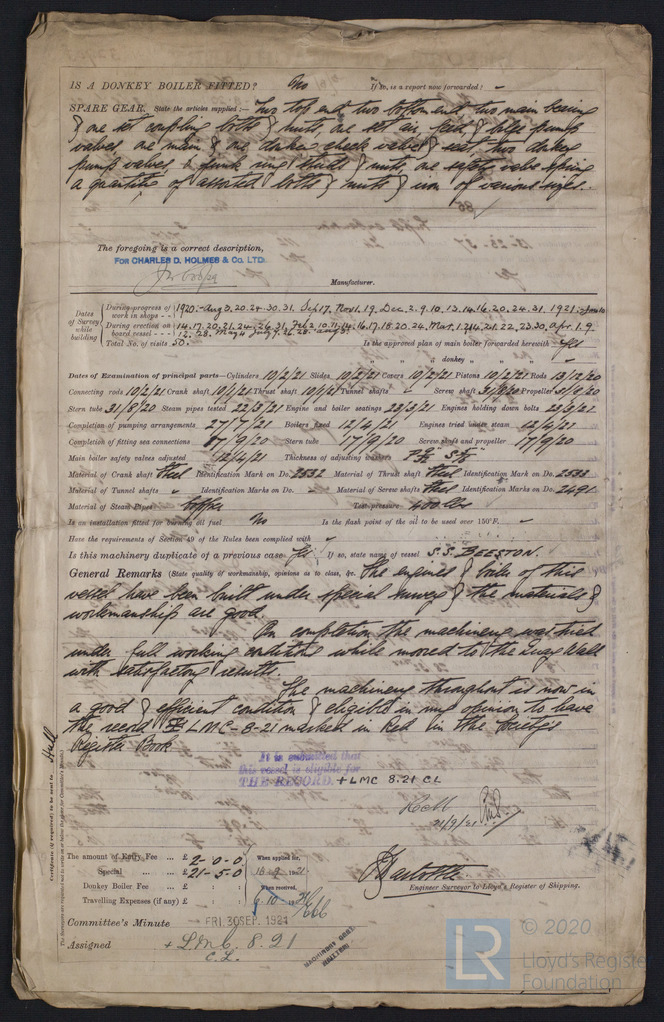 IS A DONKEY BOILER FITTED? No If so, is a report now forwarded? -
SPARE GEAR. State the articles supplied:— Two top end two bottom end two main bearing
& one set coupling bolts & nuts, one set air, feed & bilge pump
valves one main & one donkey check valve & seat, two donkey
pump valves & junk ring studs & nuts, one safety valve spring
a quantity of assorted bolts & nuts & iron of various sizes.
The foregoing is a correct description,
FOR CHARLES D. HOLMES & Co. LTD.
Manufacturer.
Dates of Survey while building
During progress of work in shops - - 1920:- Aug 3. 20. 24. 30. 31. Sep 17. Nov 1. 19. Dec. 2. 9. 10. 13. 14. 16. 20. 24. 31. 1921:-
During erection on board vessel - - 14. 17. 20. 21. 24. 26. 31. Feb 2. 10. 11. 14. 16. 17. 18. 20. 24. Mar. 1. 21. 22. 23. 30. Apr. 1. 9.
12. 28. May 4 July 9.
Total No. of visits 50. Is the approved plan of main boiler forwarded herewith Yes
" " " donkey " " " -
Dates of Examination of principal parts—Cylinders 10/2/21 Slides 10/2/21 Covers 10/2/21 Pistons 10/2/21 Rods 13/12/20
Connecting rods 10/2/21 Crank shaft 10/1/21 Thrust shaft 10/1/21 Tunnel shafts - Screw shaft 31/8/20 Propeller 31/8/20
Stern tube 31/8/20 Steam pipes tested 22/3/21 Engine and boiler seatings 23/3/21 Engines holding down bolts 23/3/21
Completion of pumping arrangements 27/7/21 Boilers fixed 12/4/21 Engines tried under steam 12/4/21
Completion of fitting sea connections 17/9/20 Stern tube 17/9/20 Screw shaft and propeller 17/9/20
Main boiler safety valves adjusted 12/4/21 Thickness of adjusting washers
Material of Crank shaft Steel Identification Mark on Do. 2532 Material of Thrust shaft Steel Identification Mark on Do. 2533
Material of Tunnel shafts - Identification Marks on Do. - Material of Screw shafts Steel Identification Marks on Do. 2491
Material of Steam Pipes Copper Test pressure 400 lbs
Is an installation fitted for burning oil fuel No Is the flash point of the oil to be used over 150°F. -
Have the requirements of Section 49 of the Rules been complied with -
Is this machinery duplicate of a previous case Yes If so, state name of vessel S.S. BEESTON.
General Remarks (State quality of workmanship, opinions as to class, &c. The engines & boiler of this
vessel have been built under special survey & the materials &
workmanship are good.
On completion the machinery was tried
under full working conditions while moored to the Quay Wall
with satisfactory results.
The machinery throughout is now in
a good & efficient condition & eligible in my opinion to have
the record LMC-8-21 marked in Red in the Society's
Register Book
It is submitted that
this vessel is eligible for
THE RECORD. + LMC 8.21 CL
21/9/21
Certificate (if required) to be sent to Hull
The amount of Entry Fee ... £ 2 - 0 - 0 When applied for,
Special ... £ 21 - 5 0 16 - 9 1921
Donkey Boiler Fee ... £ : : When received,
Travelling Expenses (if any) £ : : 6.10 1921
Engineer Surveyor to Lloyd's Register of Shipping.
Committee's Minute FRI 30 SEP. 1921
Assigned + LMC 8.21
C.L.
MACHINERY CERT. WRITTEN
© 2020
LR
Lloyd's Register
Foundation